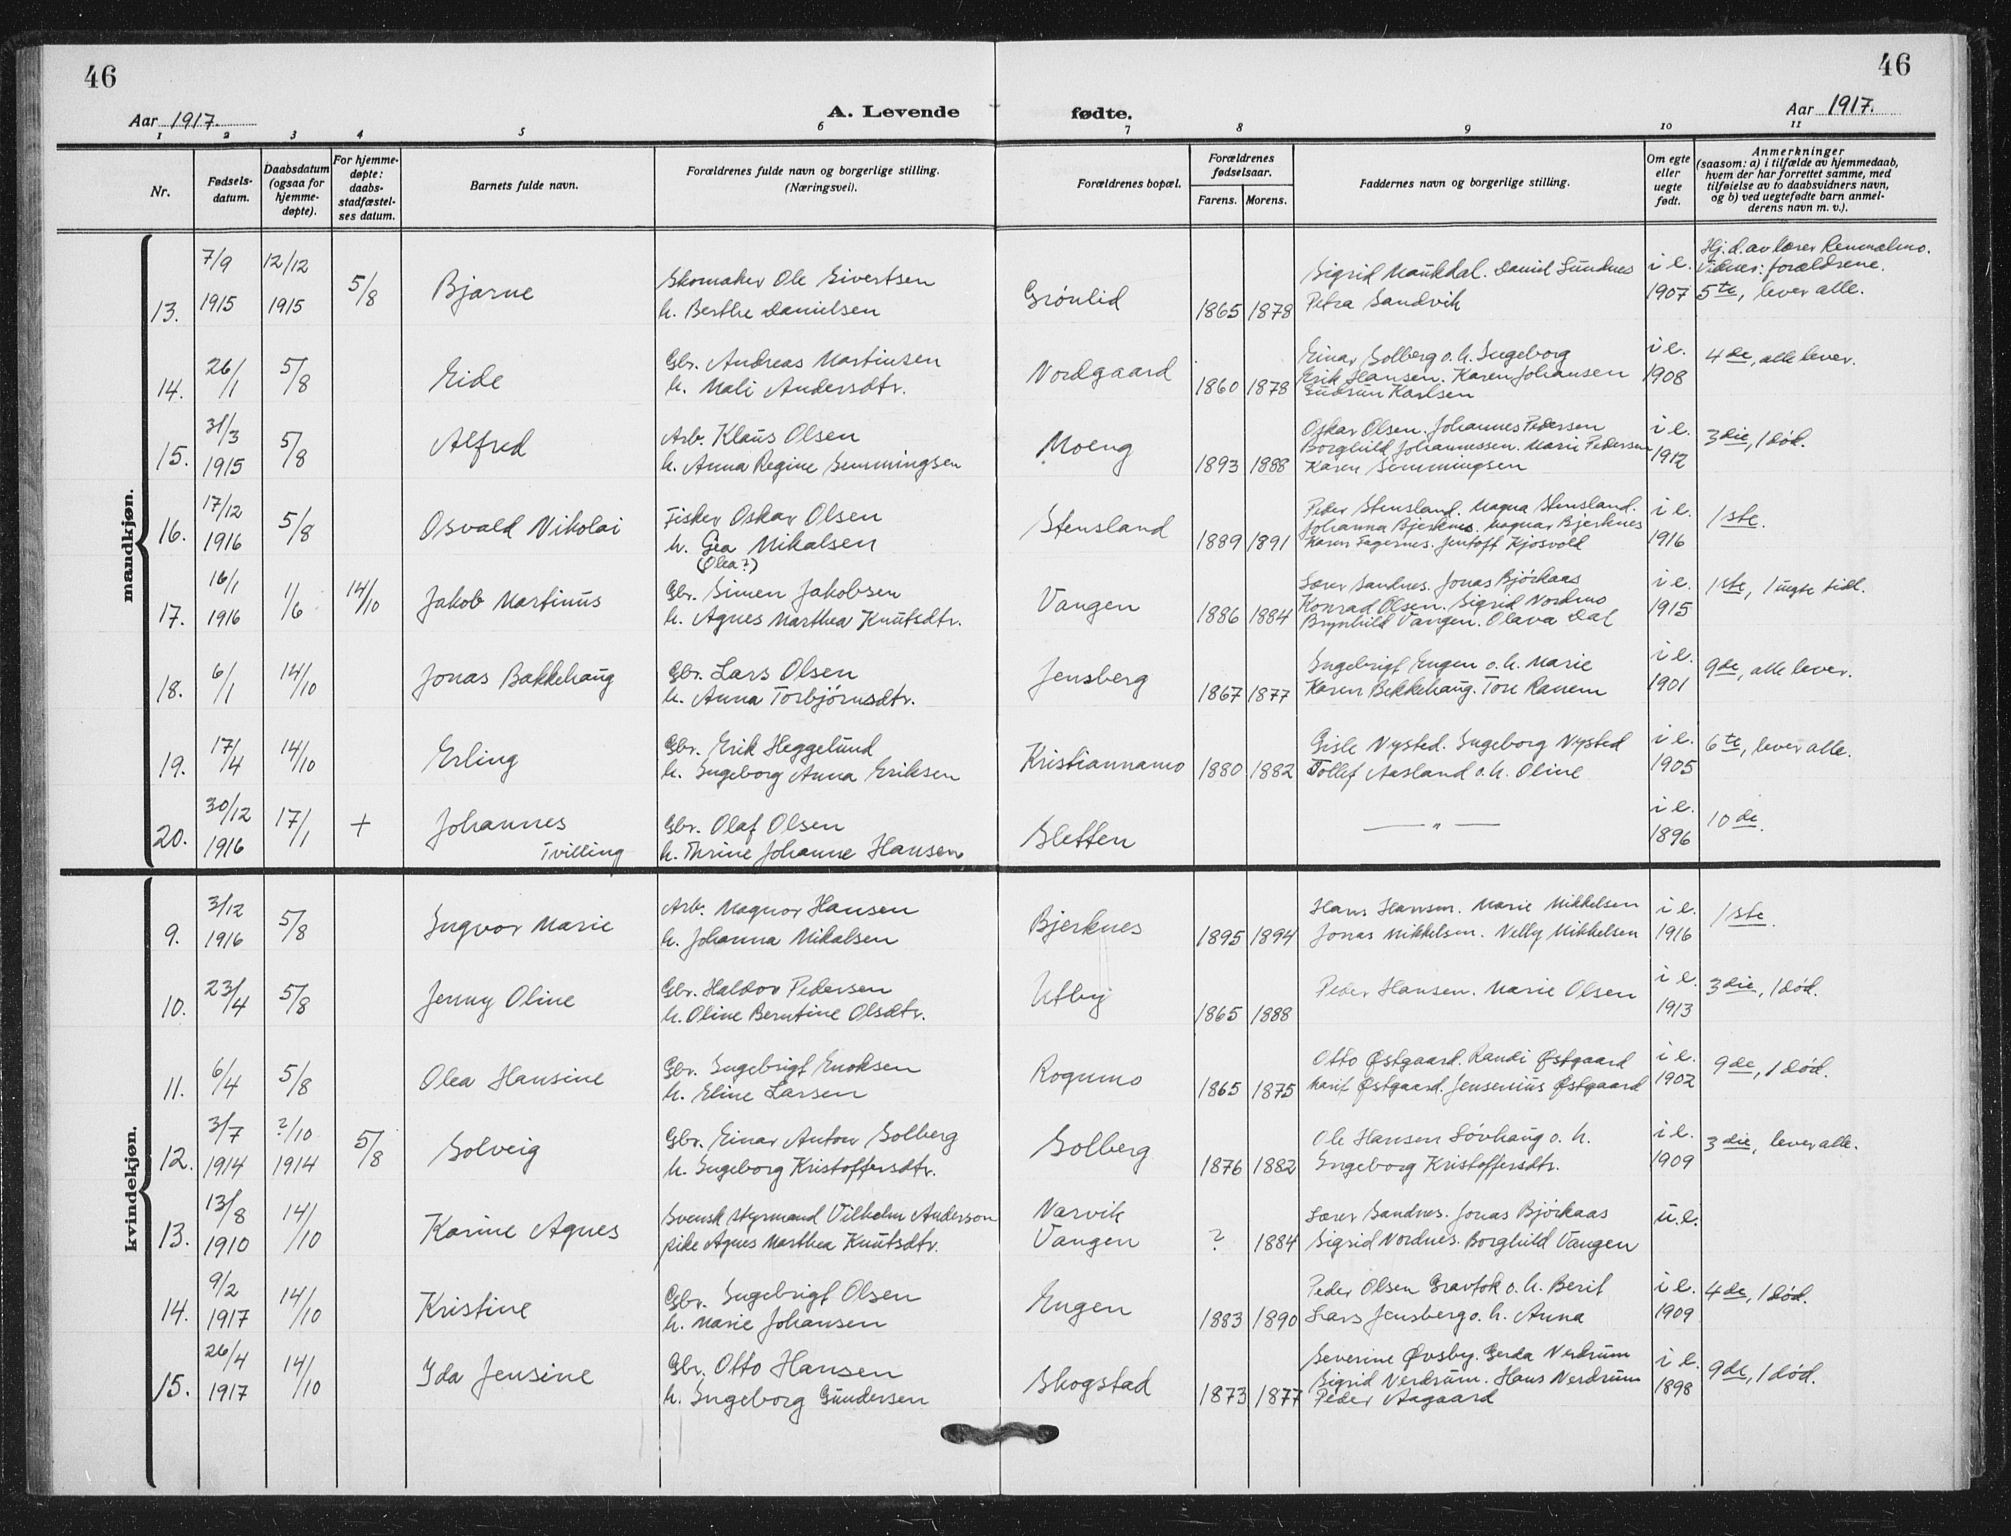 46
46
Aar 1917.
A. Levende fødte.
Aar 1917.
1 2 3 4 5 6 7 8 9 10 11
Nr.
Fødsels-
datum.
Daabsdatum
(ogsaa for
hjemme-
døpte).
For hjemme-
døpte:
daabs-
stadfæstel-
ses datum.
Barnets fulde navn.
Forældrenes fulde navn og borgerlige stilling.
(Næringsvei).
Forældrenes bopæl.
Forældrenes
fødselsaar.
Farens. Morens.
Faddernes navn og borgerlige stilling.
Om egte
eller
uegte
født.
Anmerkninger
(saasom: a) i tilfælde av hjemmedaab,
hvem der har forrettet samme, med
tilføielse av to daabsvidners navn,
og b) ved uegtefødte barn anmel-
derens navn m. v.).
mandkjøn.
13. 7/9 1915 12/12 1915 5/8 Bjarne
Skomaker Ole Sivertsen
h. Berthe Danielsen
Grönlid 1865 1878
Sigrid Maukdal. Daniel Sundnes
Petra Sandvik
i e. 1907
Hj. d. av lærer Renmælmo.
Vidner: forældrene.
5te, lever alle.
14. 26/1 5/8 Eide
Gbr. Andreas Martinsen
h. Mali Andersdtr.
Nordgaard 1860 1878
Einar Solberg o. h. Ingeborg
Erik Hansen. Karen Johansen
Gudrun Karlsen
i e. 1908
4de, alle lever.
15. 31/3 1915 5/8 Alfred
Arb. Klaus Olsen
h. Anna Regine Semmingsen
Moeng 1893 1888
Oskar Olsen. Johannes Pedersen
Borghild Johannessen. Marie Pedersen
Karen Semmingsen
i e. 1912
3die, 1 död.
16. 17/12 1916 5/8 Osvald Nikolai
Fisker Oskar Olsen
h. Gea Mikalsen
(Olea?)
Stensland 1889 1891
Peder Stensland. Magna Stensland.
Johanna Bjerknes. Magnar Bjerknes
Karen Fagernes. Jentoft Kjosvold
i e. 1916
1ste.
17. 16/1 1916 1/6 14/10 Jakob Martinus
Gbr. Simen Jakobsen
h. Agnes Marthea Knutsdtr.
Vangen 1886 1884
Lærer Sandnes. Jonas Björkaas
Konrad Olsen. Sigrid Nordmo
Brynhild Vangen. Olava Dal
i e. 1915
1ste, 1 uegte tidl.
18. 6/1 14/10 Jonas Bakkehaug
Gbr. Lars Olsen
h. Anna Torbjörnsdtr.
Jensberg 1867 1877
Ingebrigt Engen o. h. Marie
Karen Bekkehaug. Tore Ranem
i e. 1901
9de, alle lever.
19. 17/4 14/10 Erling
Gbr. Erik Heggelund
h. Ingeborg Anna Eriksen
Kristiannamo 1880 1882
Gisle Nysted. Ingeborg Nysted
Tollef Aasland o. h. Oline
i e. 1905
6te, lever alle.
20. 30/12 1916 17/1 + Johannes
Tvilling
Gbr. Olaf Olsen
h. Thrine Johanne Hansen
Sletten
— " —
i e. 1896
10de.
kvindekjøn.
9. 3/12 1916 5/8 Ingvor Marie
Arb. Magnor Hansen
h. Johanna Mikalsen
Bjerknes 1895 1894
Hans Hansen. Marie Mikkelsen
Jonas Mikkelsen. Nelly Mikkelsen
i e. 1916
1ste.
10. 23/4 5/8 Jenny Oline
Gbr. Haldor Pedersen
h. Oline Berntine Olsdtr.
Utby 1865 1888
Peder Hansen. Marie Olsen
i e. 1913
3die, 1 död.
11. 6/4 5/8 Olea Hansine
Gbr. Ingebrigt Enoksen
h. Eline Larsen
Rognmo 1865 1875
Otto Østgaard. Randi Østgaard
Marit Østgaard. Jensenius Østgaard
i e. 1902
9de, 1 död.
12. 3/7 1914 ?/10 1914 5/8 Solveig
Gbr. Einar Anton Solberg
h. Ingeborg Kristoffersdtr.
Solberg 1876 1882
Ole Hansen Lövhaug o. h.
Ingeborg Kristoffersdtr.
i e. 1909
3die, lever alle.
13. 13/8 1910 14/10 Karine Agnes
Svensk styrmand Vilhelm Anderson
pike Agnes Marthea Knutsdtr.
Narvik
Vangen ? 1884
Lærer Sandnes. Jonas Björkaas
Sigrid Nordnes. Borghild Vangen
u. e.
14. 9/2 1917 14/10 Kristine
Gbr. Ingebrigt Olsen
h. Marie Johansen
Engen 1883 1890
Peder Olsen Gravfok o. h. Berit
Lars Jensberg o. h. Anna
i e. 1909
4de, 1 död.
15. 26/4 1917 14/10 Ida Jensine
Gbr. Otto Hansen
h. Ingeborg Gundersen
Skogstad 1873 1877
Severine Øvsby. Gerda Nerdrum
Sigrid Nerdrum. Hans Nerdrum
Peder Aagaard
i e. 1898
9de, 1 död.